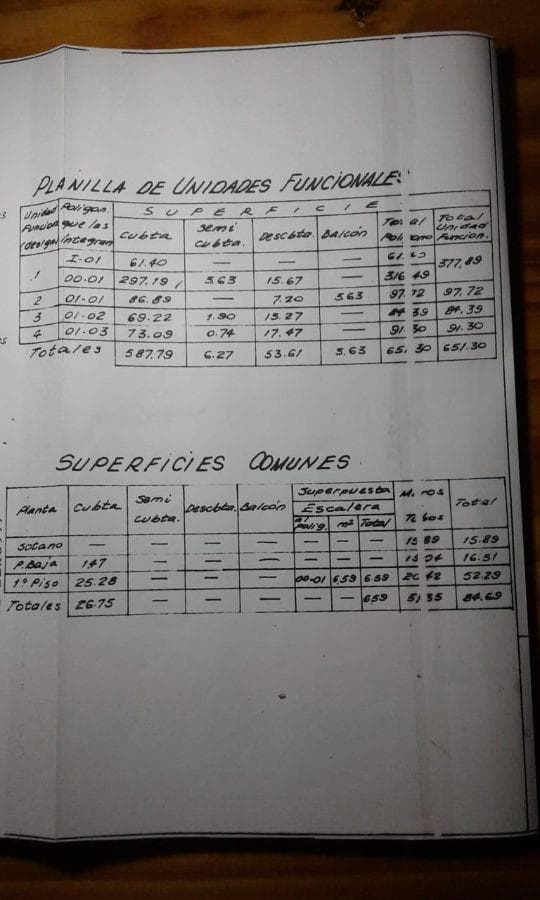 PLANILLA DE UNIDADES FUNCIONALES
Unidad Funcion (design Poligon. que las integran SUPERFICIE
Cubta Semi Cubta. Descbta. Balcón Total Polígono Total Unidad Funcion.
1 I-01 61.40 — — — 377,89
00-01 297.19 3.63 15.67 316.49
2 01-01 86.89 — 7.20 3.63 97.72 97.72
3 01-02 69.22 1.90 13.27 84.39 84,39
4 01-03 73.09 0.74 17.47 91.30 91.30
Totales 587.79 6.27 53.61 3.63 651.30
SUPERFICIES COMUNES
Planta Cubta Semi Cubta. Descbta. Balcón Superpuesta Escalera Muros Total
al Polig. m² Total
Sotano — — — — — — — 15.89 15.89
P. Baja 1.47 — — — — — — 16.51
1º Piso 25.28 — — — 00-01 6.59 6.59 20.42 52.29
Totales 26.75 — — — — — 6.59 84.69